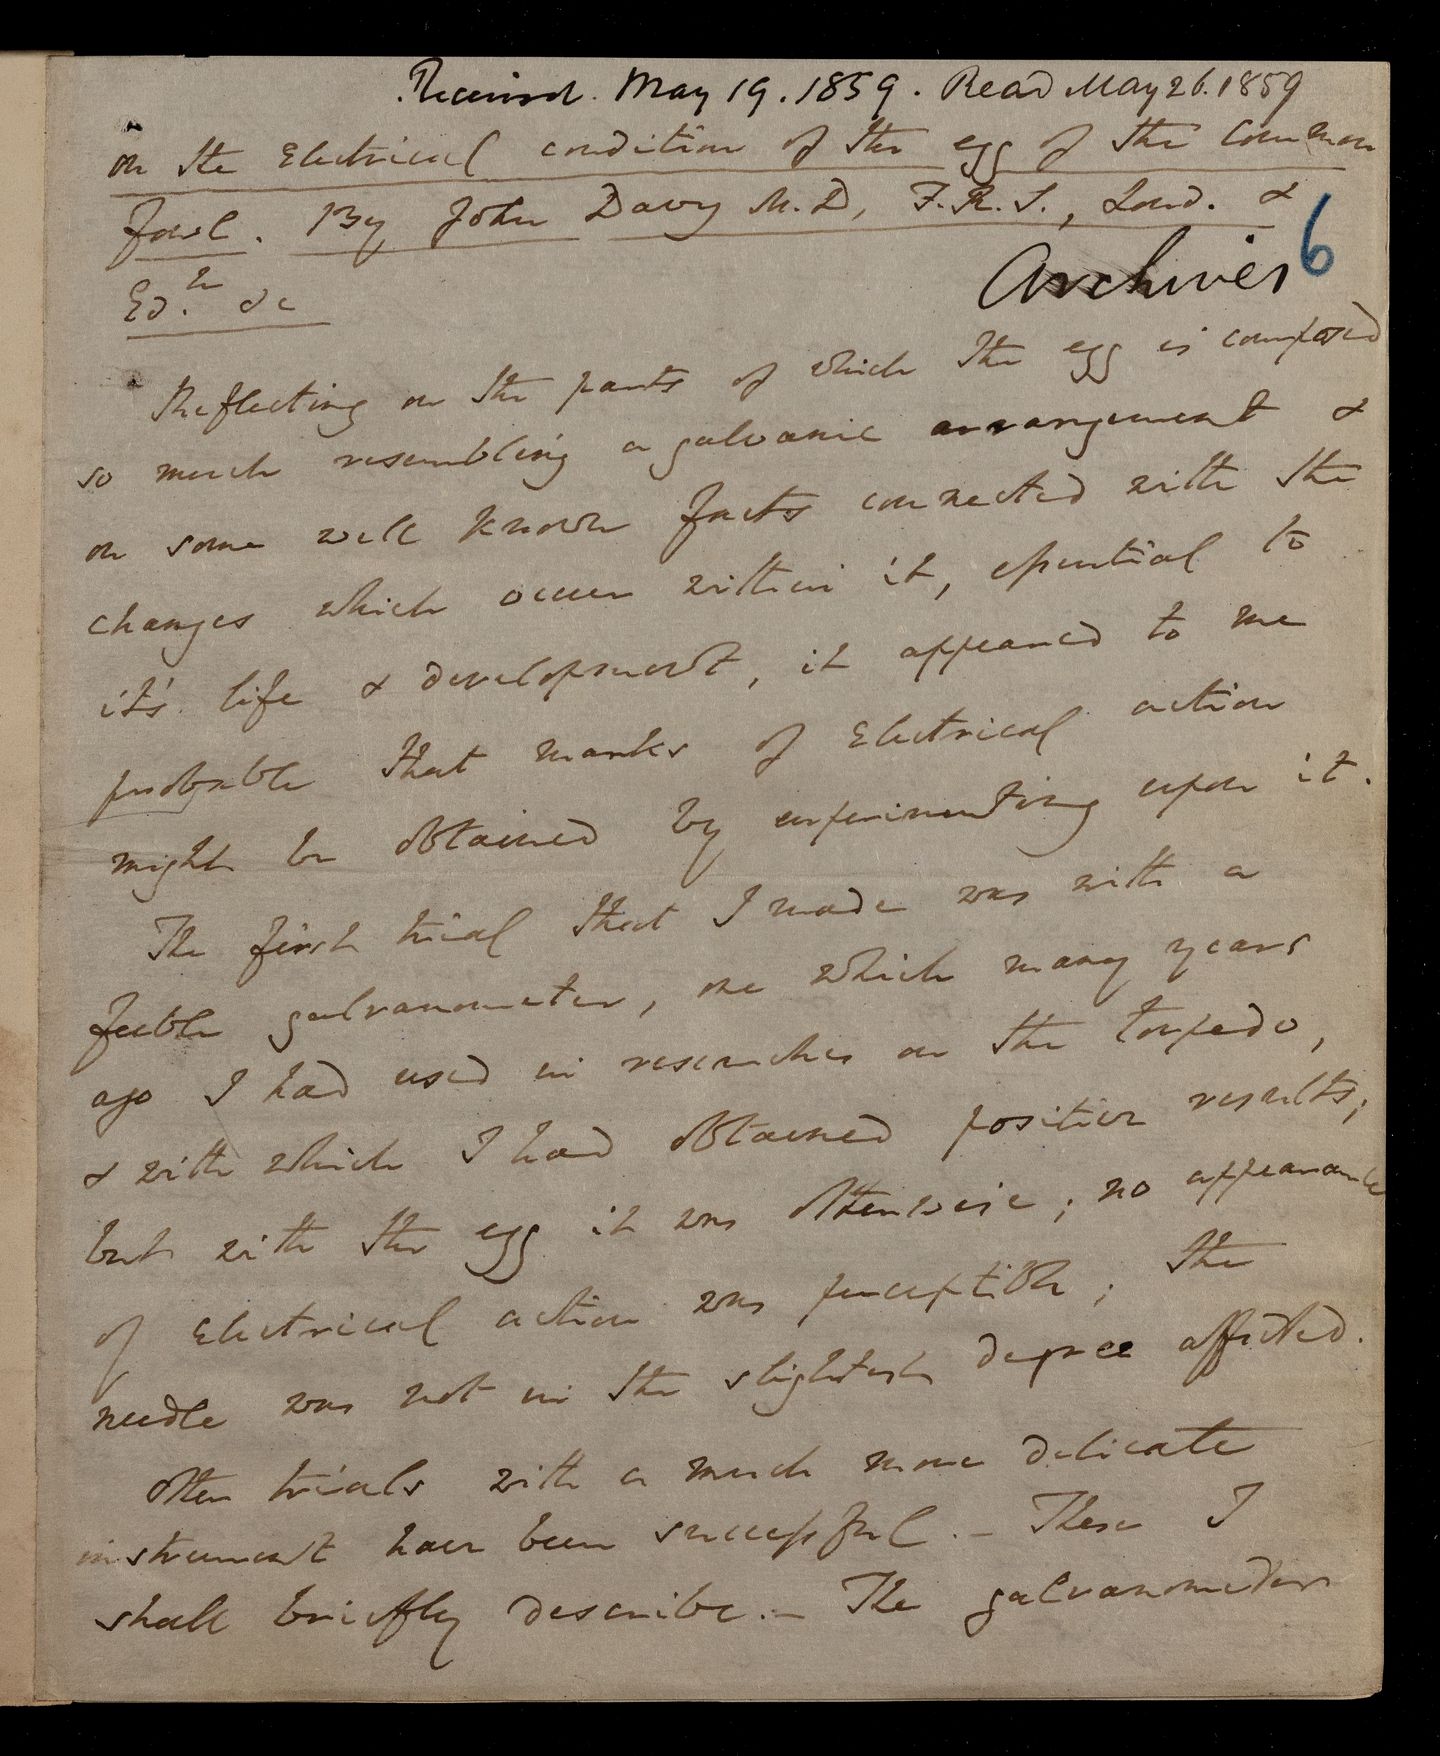 Received. May 19. 1859. Read May 26. 1859
On the Electrical condition of the egg of the Common
Fowl. By John Davy M.D, F.R.S., Lond. &
Ed.n &c
Archives 6
Reflecting on the parts of which the egg is composed
so much resembling a galvanic arrangement &
on some well known facts connected with the
changes which occur within it, essential to
it's life & development, it appeared to me
probable that marks of Electrical action
might be obtained by experimenting upon it.
The first trial that I made was with a
feeble galvanometer, one which many years
ago I had used in researches on the torpedo,
& with which I had obtained positive results;
but with the egg it was otherwise; no appearance
of Electrical action was perceptible; the
needle was not in the slightest degree affected.
Other trials with a much more delicate
instrument have been successful. – These I
shall briefly describe. – The galvanometer